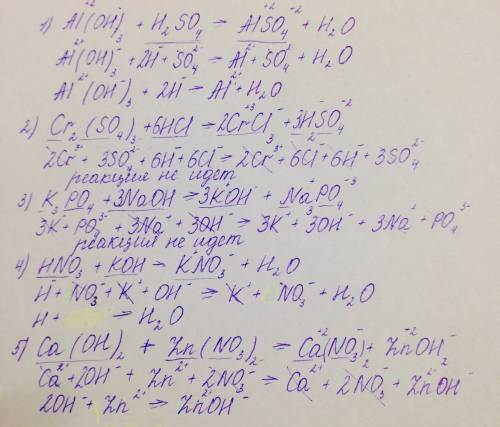 1) Al⁺²(OH)⁻₃ + H₂SO₄ = Al⁺²SO₄⁻² + H₂O
Al²⁺(OH)⁻ + 2H⁻ + SO₄²⁻ = Al²⁺ + SO₄²⁻ + H₂O
Al²⁺(OH⁻)₃ + 2H⁻ = Al²⁺ + H₂O
2) Cr₂(SO₄)₃ + 6HCl = 2Cr⁺³Cl₃⁻ + 3H₂SO₄⁻²
2Cr³⁻ + 3SO₄²⁻ + 6H⁻ + 6Cl⁻ = 2Cr³⁻ + 6Cl⁻ + 6H⁻ + 3SO₄²⁻
реакция не идет
3) K₃PO₄ + 3NaOH = 3K⁺OH⁻ + Na⁺PO₄⁻³
3K⁺ + PO₄³⁻ + 3Na⁺ + 3OH⁻ = 3K⁺ + 3OH⁻ + 3Na⁺ + PO₄³⁻
реакция не идет
4) HNO₃ + KOH = K⁺NO₃⁻ + H₂O
H⁺ + NO₃⁻ + K⁺ + OH⁻ = K⁺ + NO₃⁻ + H₂O
H+ = H₂O
5) Ca(OH)₂ + Zn(NO₃)₂ = Ca⁺²(NO₃⁻)₂ + Zn⁺²OH₂⁻
Ca²⁺ + 2OH⁻ + Zn²⁺ + 2NO₃⁻ = Ca²⁺ + 2NO₃⁻ + Zn²⁺OH⁻
2OH⁻ + Zn²⁺ = Zn²⁺OH⁻